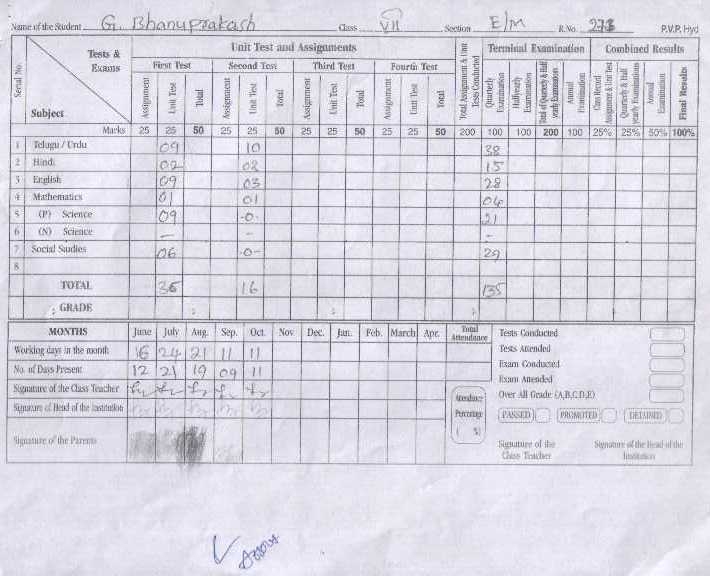 Name of the Student G. Bhanuprakash Class VII Section E/M R.No. 273 P.V.P. Hyd
Serial No. Tests & Exams Subject Unit Test and Assignments Terminal Examination Combined Results
First Test Second Test Third Test Fourth Test
Assignment Unit Test Total Assignment Unit Test Total Assignment Unit Test Total Assignment Unit Test Total Total Assignment & Unit Tests Conducted Quarterly Examination Halfyearly Examination Total of Quarterly & Half yearly Examination Annual Examination Class Record Assignment & Unit Test Quarterly & Half yearly Examinations Annual Examination Final Results
Marks 25 25 50 25 25 50 25 25 50 25 25 50 200 100 100 200 100 25% 25% 50% 100%
1 Telugu / Urdu 09 10 38
2 Hindi 02 02 15
3 English 09 03 28
4 Mathematics 01 01 04
5 (P) Science 09 -0- 21
6 (N) Science - - -
7 Social Studies 06 -0- 29
8
TOTAL 36 16 135
GRADE
MONTHS June July Aug. Sep. Oct. Nov Dec. Jan. Feb. March Apr. Total Attendance
Working days in the month 16 24 21 11 11
No. of Days Present 12 21 19 09 11
Signature of the Class Teacher
Signature of Head of the Institution
Signature of the Parents
Attendance Percentage ( %)
Tests Conducted
Tests Attended
Exam Conducted
Exam Attended
Over All Grade (A,B,C,D,E)
PASSED PROMOTED DETAINED
Signature of the Class Teacher Signature of the Head of the Institution